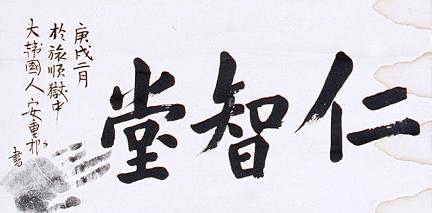 仁智堂
庚戌二月
於旅順獄中
大韓國人 安重根
書